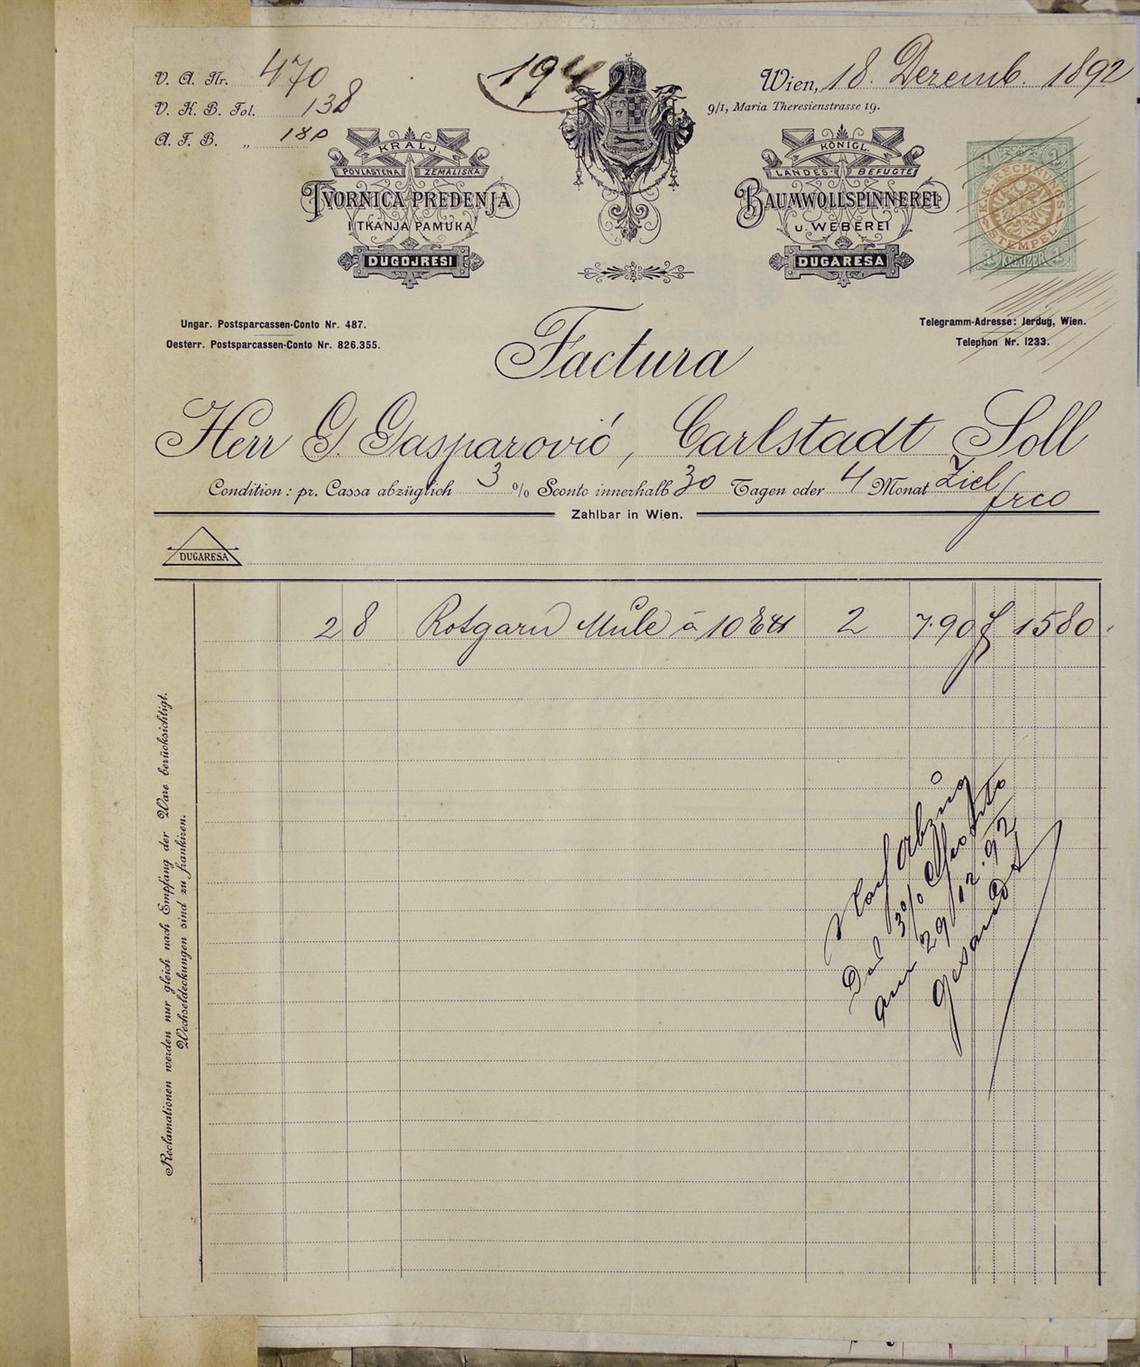 V. A. Nr. 470
V. K. B. Fol. 138
A. F. B. „ 180
194
Wien, 18. Dezemb. 1892
9/1, Maria Theresienstrasse 19.
KRALJ.
POVLAŠTENA ZEMALJSKA
TVORNICA PREDENJA
I TKANJA PAMUKA
DUGOJRESI
KÖNIGL.
LANDES- BEFUGTE
BAUMWOLLSPINNEREI
U. WEBEREI
DUGARESA
K. K. RECHNUNGS
STEMPEL
1 KREUZER
Ungar. Postsparcassen-Conto Nr. 487.
Oesterr. Postsparcassen-Conto Nr. 826.355.
Telegramm-Adresse: Jerdug, Wien.
Telephon Nr. 1233.
Factura
Herr G. Gasparović, Carlstadt Soll
Condition: pr. Cassa abzüglich 3 % Sconto innerhalb 30 Tagen oder 4 Monat Ziel
frco
Zahlbar in Wien.
DUGARESA
28 Rotgarn Mule à 10 2 7.90 f 1580
Nach Abzug
3%
am 29/12.92
gesandt
Reclamationen werden nur gleich nach Empfang der Ware berücksichtigt.
Wechseldeckungen sind zu frankiren.